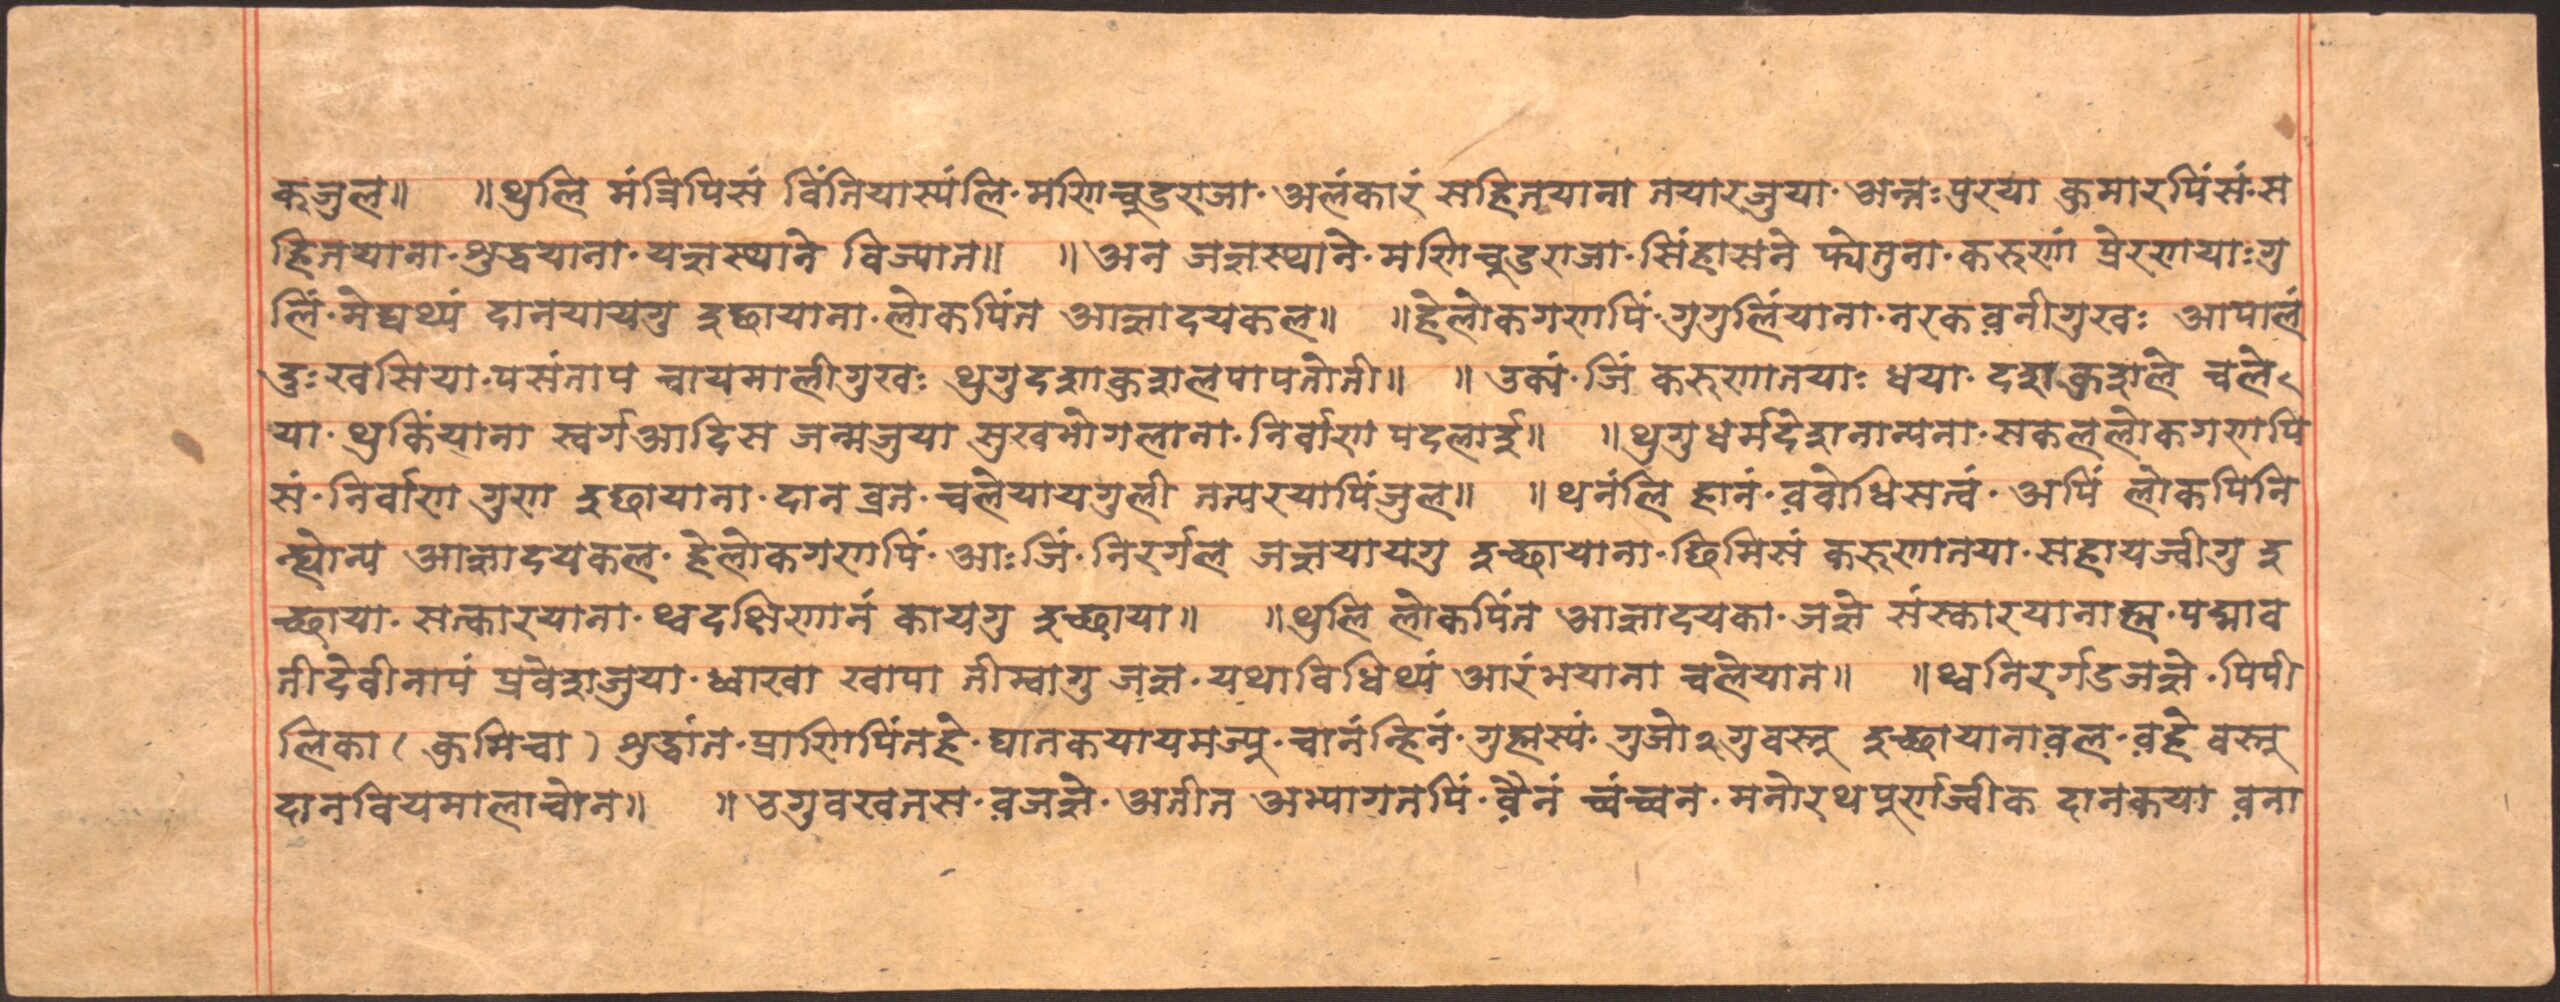 कजुल॥ ॥थुलि मंत्रिपिसं विंतियास्यंलि· मणिचुडराजा· अलंकारं सहितयाना तयारजुया· अन्तःपुरया कुमारपिंसं· स
हितयाना· शुद्धयाना· यज्ञस्थाने विज्यात॥ ॥अन जज्ञस्थाने· मणिचुडराजा· सिंहासने फ्येतुना· करुणां प्रेरणायाः गु
लिं· मेघथ्यं दानयायगु इछायाना· लोकपिंत आज्ञादयकल॥ ॥हेलोकगणपिं· गुगुलिंयाना· नरक व़नीगुखः आपालं
दुःखसिया· पसंताप चायमालीगुखः थुगुदशाकुशलपापतोती॥ ॥उकिं· जिं करुणातयाः धया· दशकुशले चले२
या· थुकिंयाना स्वर्गआदिस जन्मजुया सुखभोगलाना· निर्वाण पदलाई॥ ॥थुगुधर्मदेशनान्यना· सकललोकगणपि
सं· निर्वाण गुण इछायाना· दान व्रत· चलेयायगुली तत्परयापिंजुल॥ ॥थनंलि हानं· व़बोधिसत्वं· अपिं लोकपिनि
न्ह्योन्य आज्ञादयकल· हेलोकगणपिं· आः जिं· निरर्गल जज्ञयायगु इच्छायाना· छिमिसं करुणातया· सहायज्वीगु इ
च्छाया· सत्कारयाना· थ्वदक्षिणानं कायगु इच्छाया॥ ॥थुलि लोकपिंत आज्ञादयका· जज्ञे संस्कारयानाह्म· पद्माव
तीदेवीनापं प्रवेशजुया· ध्वाखा खापा तीम्वागु जज्ञ· यथाविधिथ्यं आरंभयाना चलेयात॥ ॥थ्वनिरर्गडजज्ञे· पिपी
लिका ( कुमिचा ) शुद्धांत· प्राणिपिंतहे· घातकयायमज्यु· चानंन्हिनं· गुह्मस्यं· गुजो२गुवस्तु इच्छायानाव़ल· व़हे वस्तु
दानवियमालाच्वोन॥ ॥उगुवखतस· व़जज्ञे· अतीत अभ्यागतपिं· व़ैनं च्वंच्वन· मनोरथपुर्णज्वीक दानकया व़ना